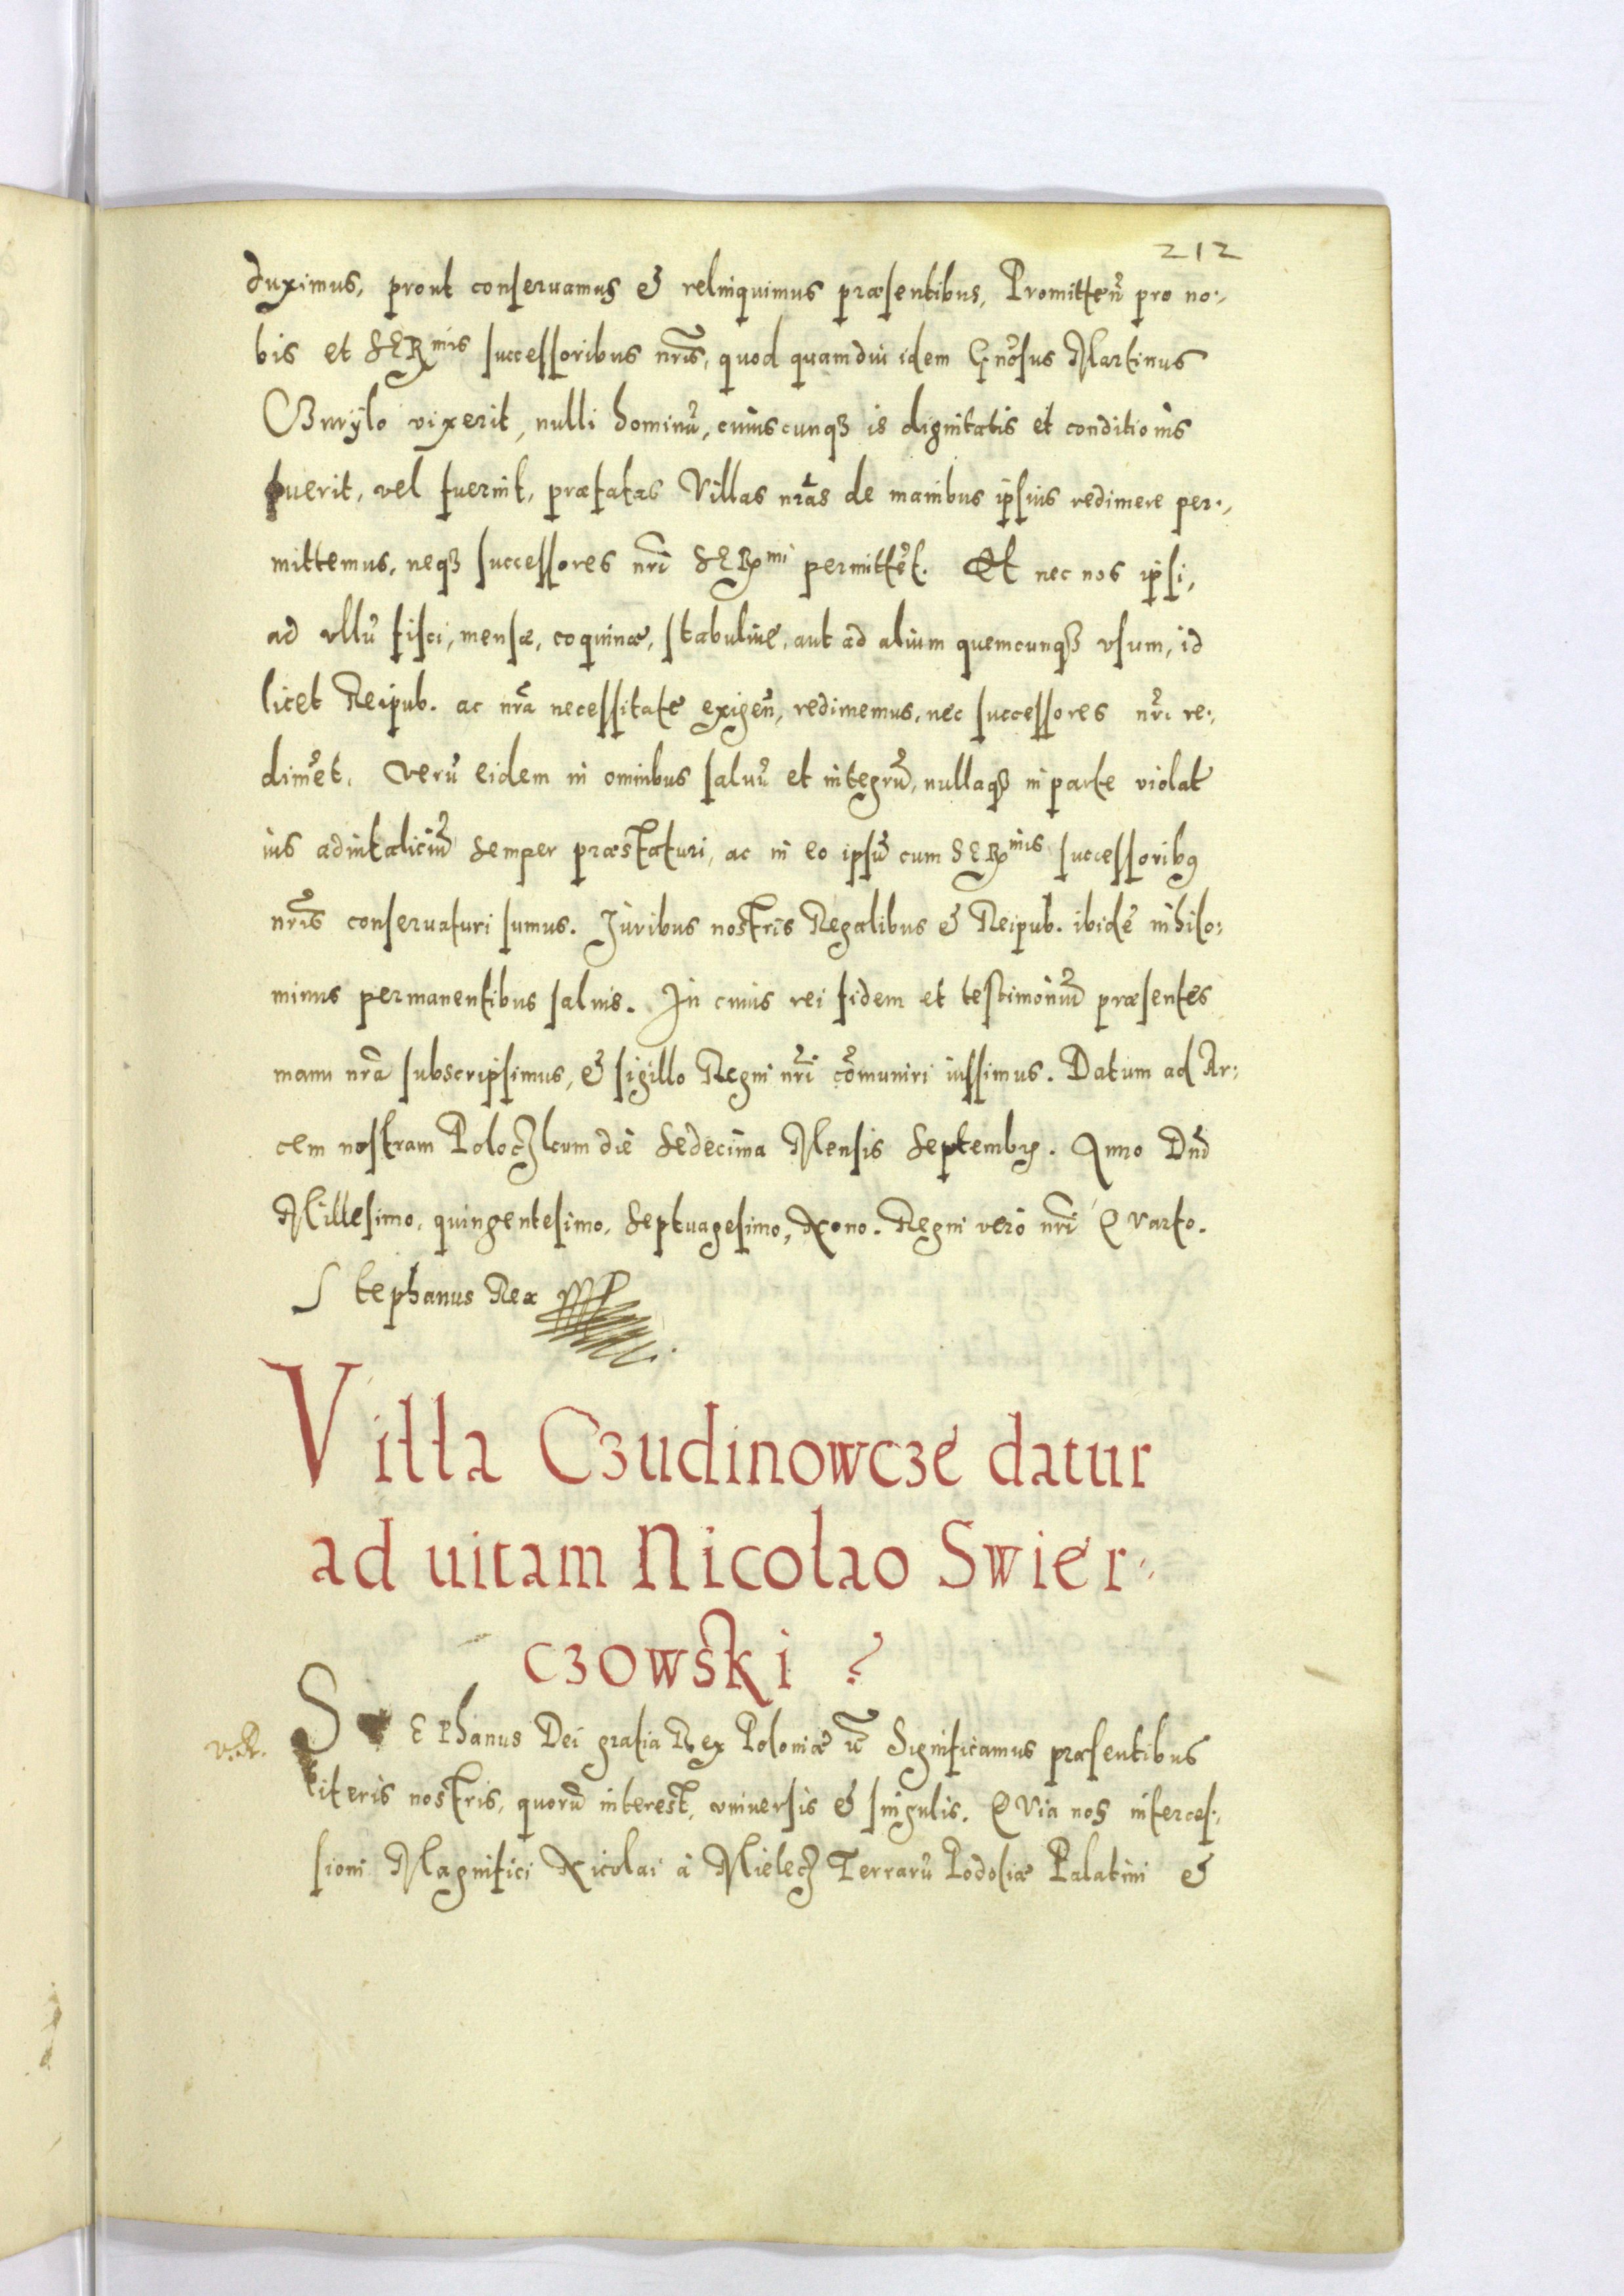 212
duximus, prout conseruamus & relinquimus præsentibus, Promitteñ pro no-
bis et SERmis successoribus nr̃is, quod quamdiu idem Gnosus Martinus
Gurÿlo vixerit, nulli hominũ, cuiuscunqꝫ is dignitatis et conditionis
fuerit, vel fuerint, præfatas Villas nr̃as de manibus ipsius redimere per-
mittemus, neqꝫ successores nr̃i SERmi permittẽt. Et nec nos ipsi,
ad vllũ fisci, mensæ, coquinæ, stabuliue, aut ad alium quemcunqꝫ vsum, id
licet Reipub. ac nr̃a necessitate exigeñ, redimemus, nec successores nr̃i re-
dimẽt. Verũ eidem in omnibus saluũ et integrũ, nullaqꝫ in parte violat
ius aduitaliciũ semper præstaturi, ac in eo ipsũ cum SERmis successoribꝯ
nr̃is conseruaturi sumus. Juribus nostris Regalibus & Reipub. ibidẽ nihilo-
minus permanentibus saluis. In cuius rei fidem et testimoniũ præsentes
manu nr̃a subscripsimus, & sigillo Regni nr̃i cõmuniri iussimus. Datum ad Ar-
cem nostram Poloczkum die Sedecima Mensis Septembrꝭ. Anno Dñi
Millesimo, quingentesimo, Septuagesimo, Nono. Regni vero nr̃i Qvarto.
Stephanus Rex
Villa Czudinowcze datur
ad uitam Nicolao Swier-
czowski
v.R. Stephanus Dei gratia Rex Poloniæ Significamus præsentibus
literis nostris, quorũ interest, vniuersis & singulis. Qvia nos interces-
sioni Magnifici Nicolai à Mielecz Terrarũ Podoliæ Palatini &